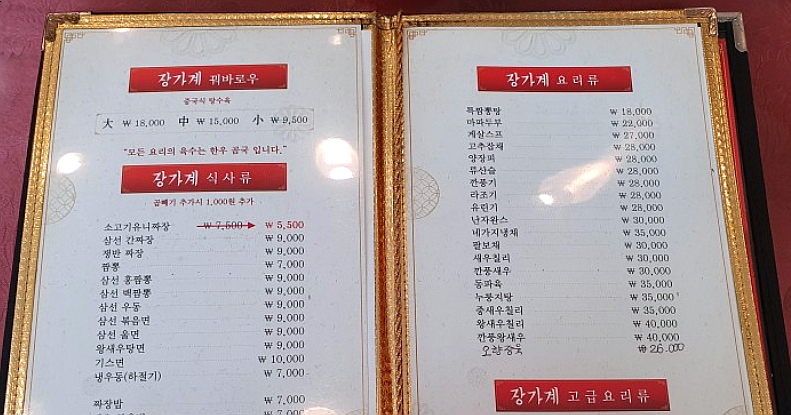 장가계 꿔바로우
중국식 탕수육
大 ₩ 18,000 中 ₩ 15,000 小 ₩ 9,500
"모든 요리의 육수는 한우 곰국 입니다."
장가계 식사류
곱빼기 추가시 1,000원 추가
소고기유니짜장 ₩ 7,500 ₩ 5,500
삼선 간짜장 ₩ 9,000
쟁반 짜장 ₩ 9,000
짬뽕 ₩ 7,000
삼선 홍짬뽕 ₩ 9,000
삼선 백짬뽕 ₩ 9,000
삼선 우동 ₩ 9,000
삼선 볶음면 ₩ 9,000
삼선 울면 ₩ 9,000
왕새우탕면 ₩ 9,000
기스면 ₩ 10,000
냉우동(하절기) ₩ 7,000
짜장밥 ₩ 7,000
장가계 요리류
특짬뽕탕 ₩ 18,000
마파두부 ₩ 22,000
게살스프 ₩ 27,000
고추잡채 ₩ 28,000
양장피 ₩ 28,000
류산슬 ₩ 28,000
깐풍기 ₩ 28,000
라조기 ₩ 28,000
유린기 ₩ 28,000
난자완스 ₩ 30,000
네가지냉채 ₩ 35,000
팔보채 ₩ 30,000
새우칠리 ₩ 30,000
깐풍새우 ₩ 30,000
동파육 ₩ 35,000
누룽지탕 ₩ 35,000
중새우칠리 ₩ 35,000
왕새우칠리 ₩ 40,000
깐풍왕새우 ₩ 40,000
오향장육 ₩ 26.000
장가계 고급요리류